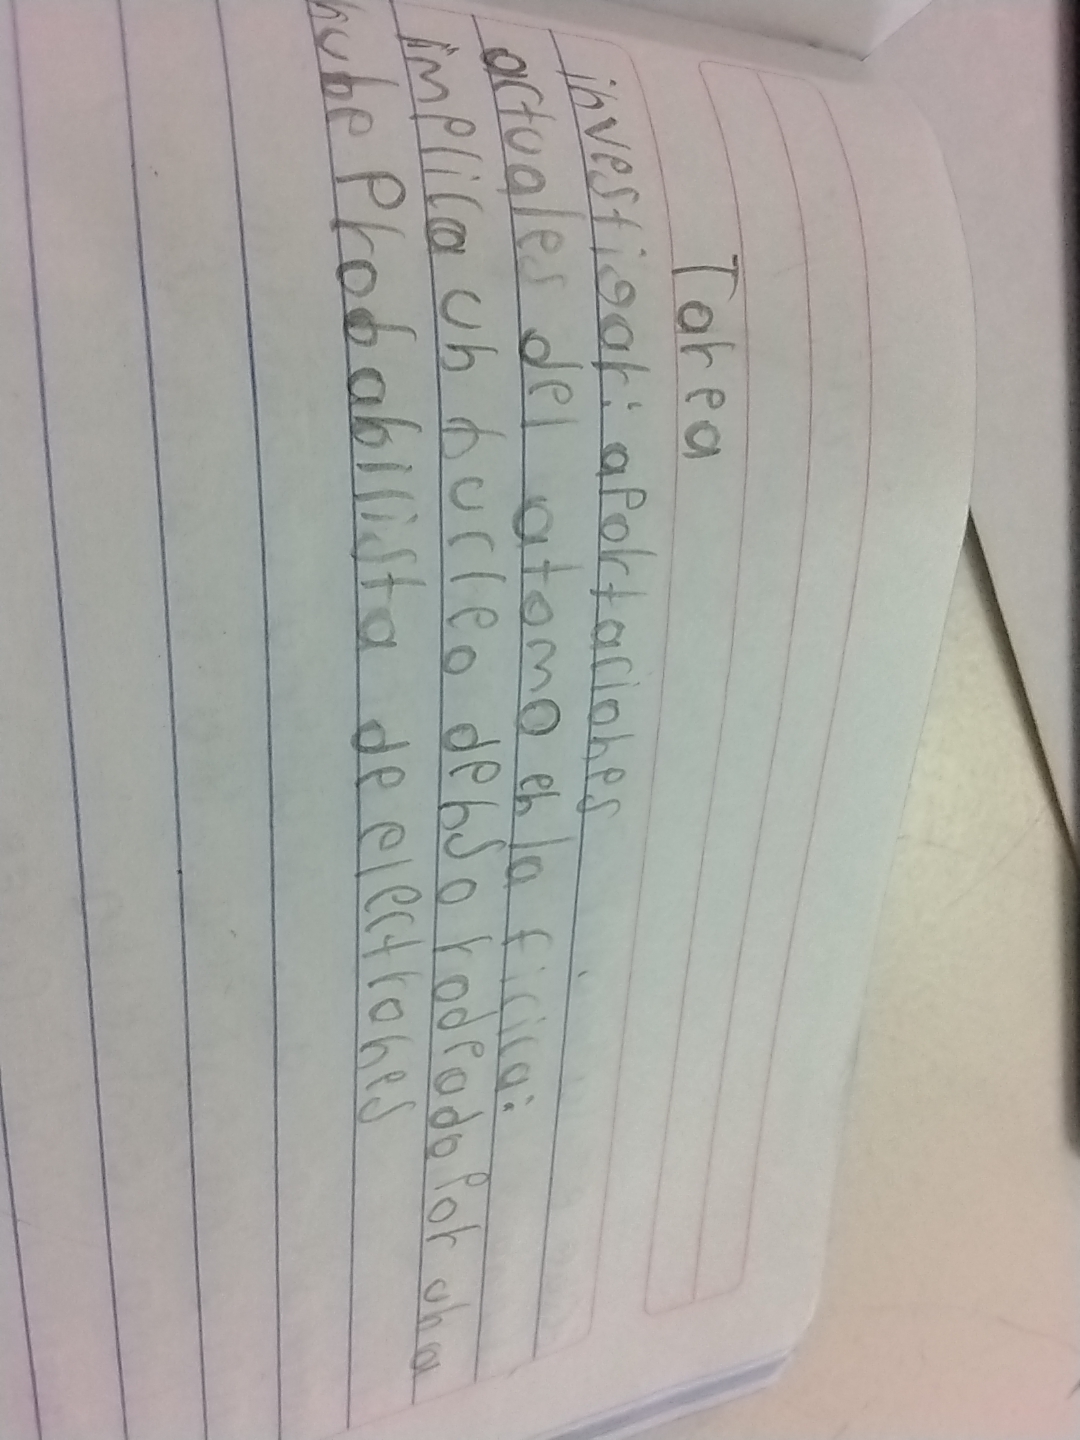 Tarea
investigar: aportaciones
actuales del atomo en la fícica:
implica un nucleo denso rodeado por una
nube Probabilista de electrones